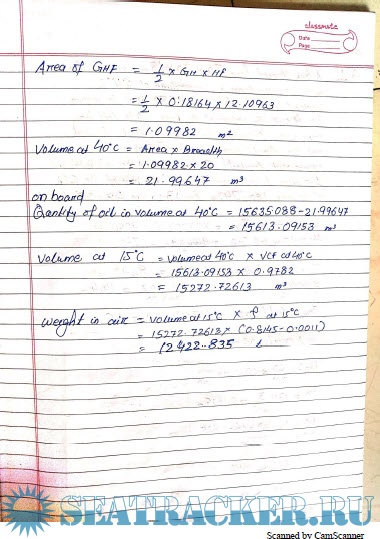 classmate
Date
Page
Area of GHF = 1/2 x GH x HF
= 1/2 x 0.18164 x 12.10963
= 1.09982 m²
Volume at 40°C = Area x Breadth
= 1.09982 x 20
= 21.99647 m³
on board
Quantity of oil in volume at 40°C = 15635.088-21.99647
= 15613.09153 m³
Volume at 15°C = Volume at 40°C x VCF at 40°C
= 15613.09153 x 0.9782
= 15272.72613 m³
Weight in air = Volume at 15°C x ρ at 15°C
= 15272.72613 x (0.8145-0.0011)
= 12422.835 t
SEATRACKER.RU
Scanned by CamScanner